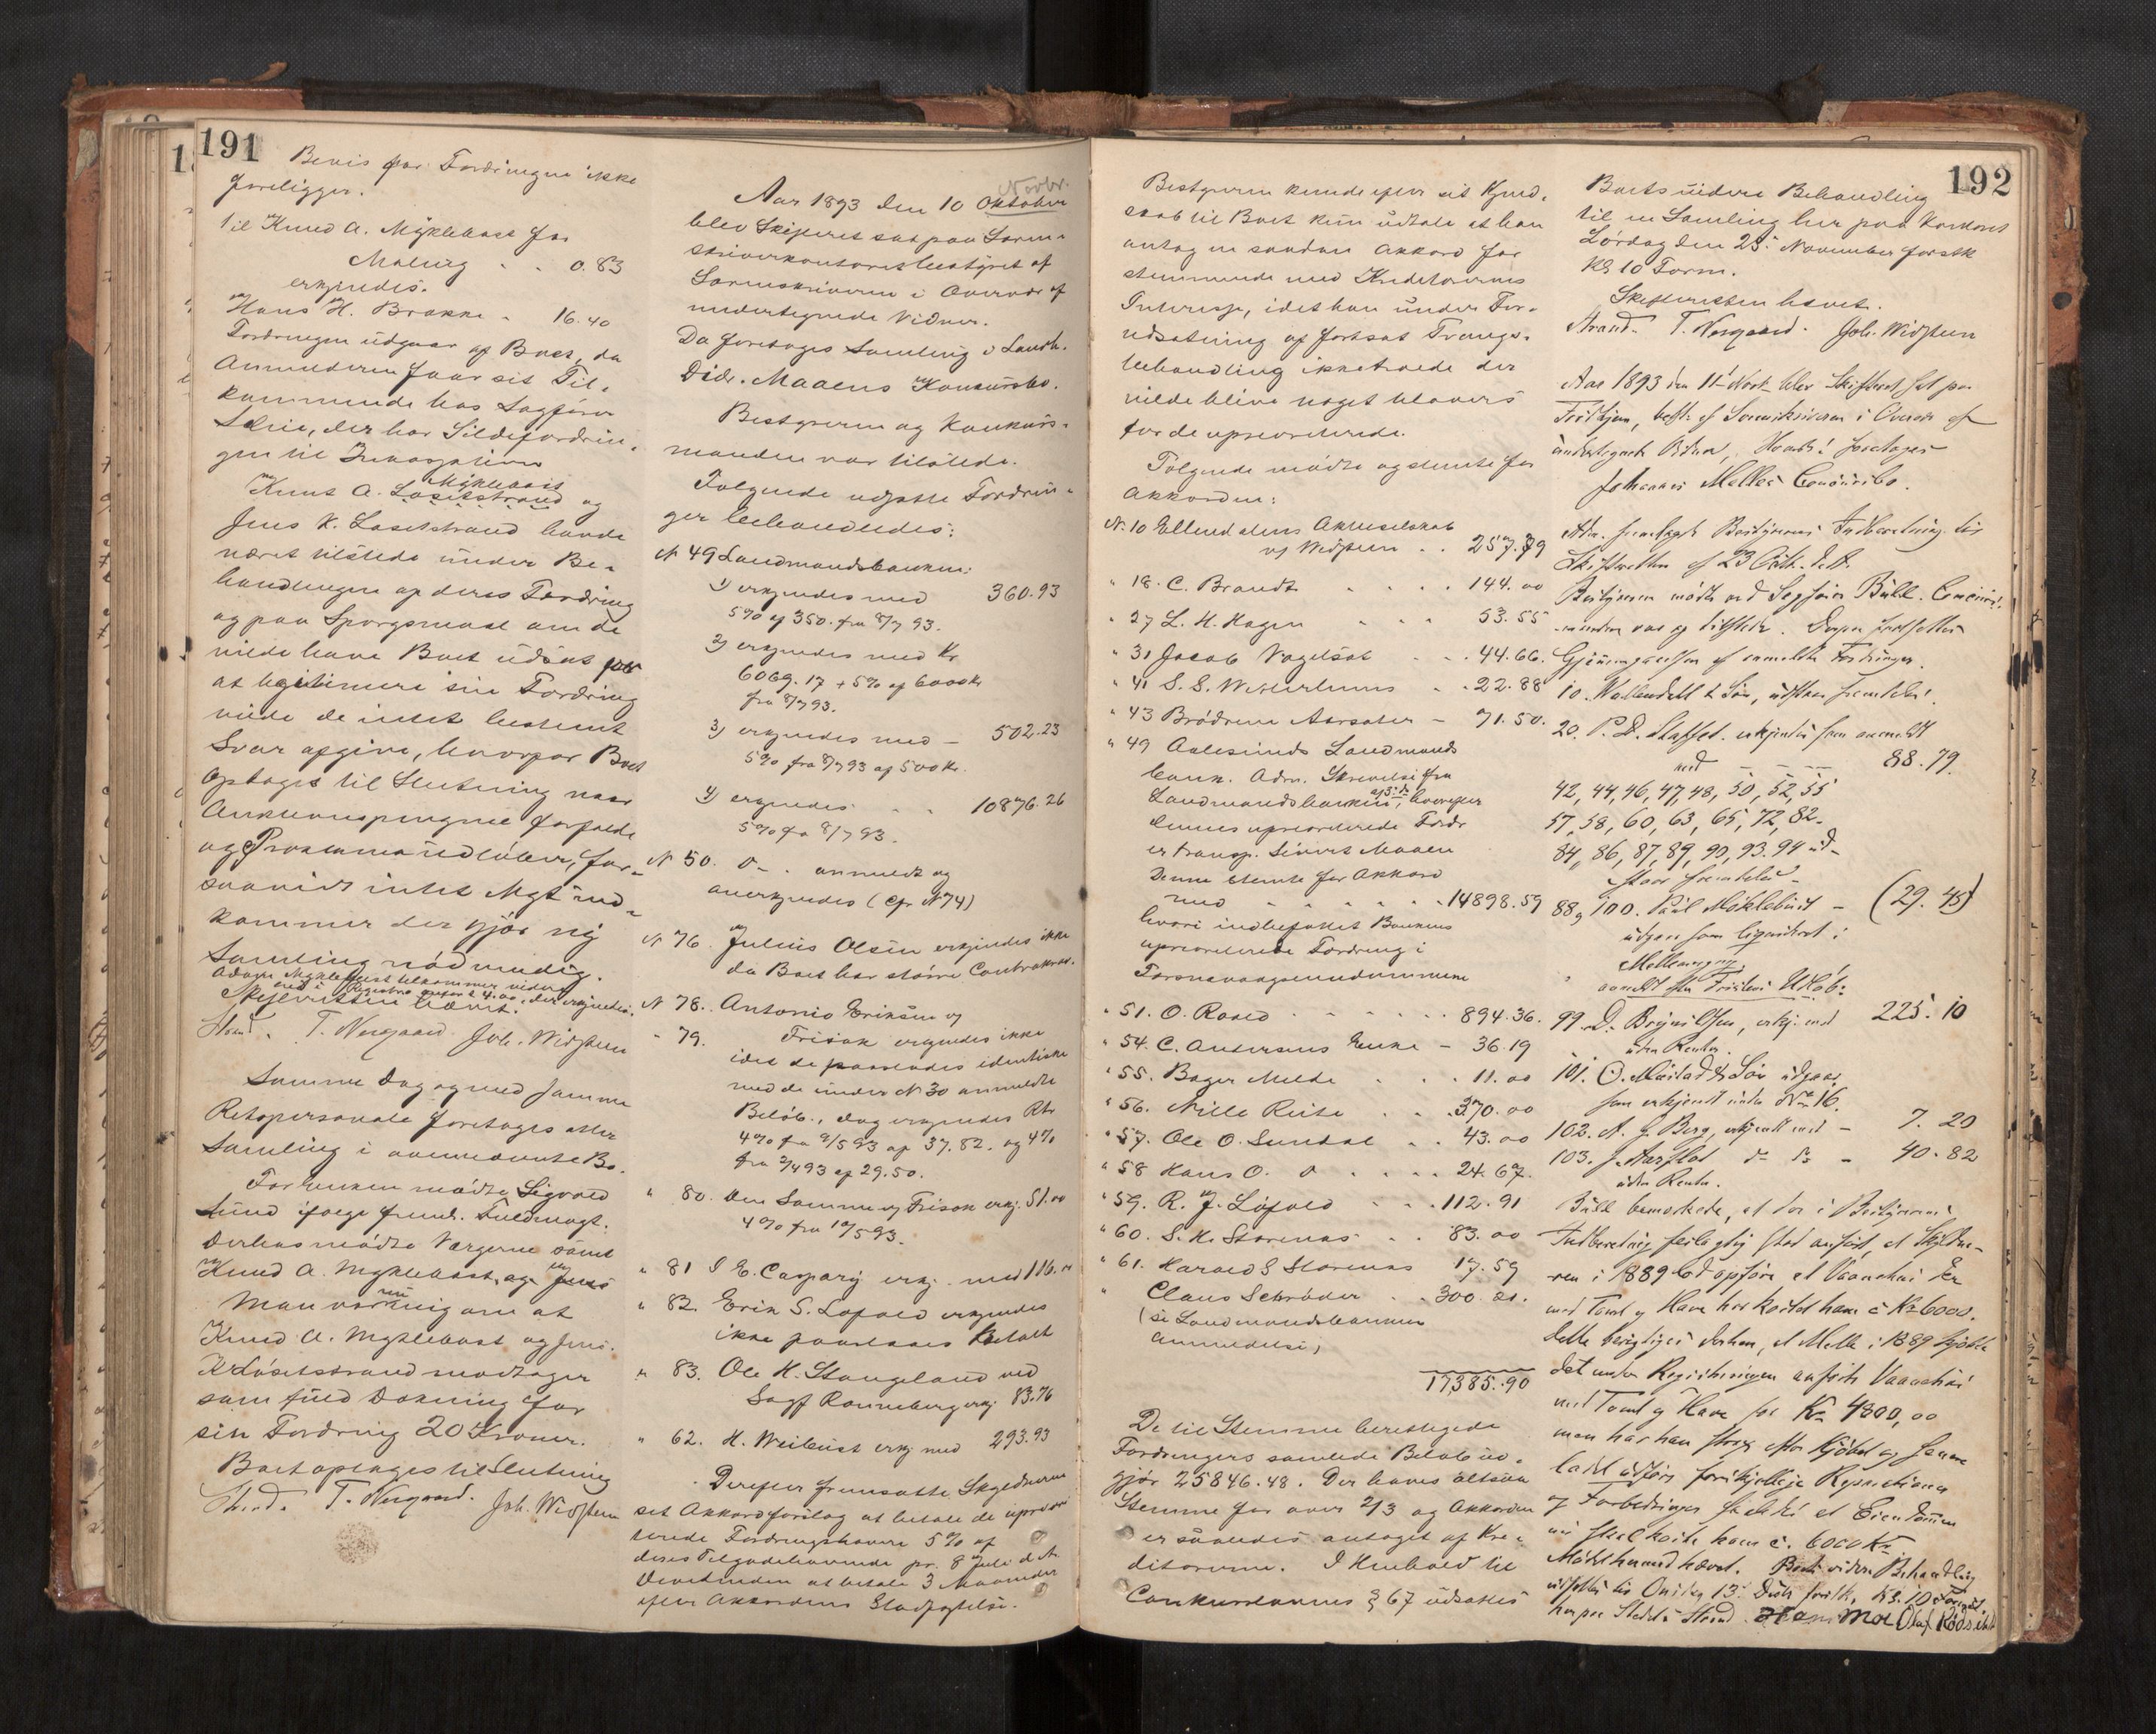 191
Bevis for Fordringen ikke
foreligger.
Til Knud A. Myklebost for
Maling . . 0.83
erkjendes.
Hans H. Brakke - 16.40
Fordringen udgaar af Boet, da
Anmelderen faar sit Til-
kommende hos Sagfører
der har Sildefordrin-
gen til
Knut A. Løsetstrand og
Myklebost
Jens K. Løsetstrand havde
været tilstede under Be-
handlingen af deres Fordring
og paa Spørgsmaal om de
vilde have Boet udsat for
at legitimere sin Fordring
vilde de intet bestemt
Svar afgive, hvorpaa Boet
optages til Slutning naar
Auktionspengene forfalde
og Proklama udløber, for-
saavidt intet Nyt ind-
kommer der gjør ny
Samling nødvendig.
Skifteretten hævet.
Strand. T. Norgaard Joh. Widsteen
Samme Dag og med samme
Retspersonale foretoges atter
Samling i ovennævnte Bo.
For Enken mødte Sigvald
Lund ifølge freml. Fuldmagt.
Derhos mødte Værgerne samt
Knud A. Myklebost og Jens
Man var nu enig om at
Knud A. Myklebost og Jens
K Løsetstrand modtager
som fuld Dækning for
sin Fordring 20 Kroner.
Boet optages til Slutning
Strand. T. Norgaard. Joh. Widsteen
Novbr.
Aar 1893 den 10 Oktober
blev Skifteret sat paa Soren-
skriverkontoret bestyret af
Sorenskriveren i Overvær af
undertegnede Vidner.
Da foretoges Samling i Landh.
Didr. Maaens Konkursbo.
Bestyreren og Konkurs-
manden var tilstede.
Følgende udsatte Fordrin-
ger behandledes:
N 49 Landmandsbanken:
1) erkjendes med 360.93
5% af 350. fra 8/7 93.
2) erkjendes med Kr
6069.17 + 5% af 6000 Kr
fra 8/7 93.
3) erkjendes med - 502.23
5% fra 8/7 93 af 500 Kr.
4) erkjendes . . 10876.26
5% fra 8/7 93.
N 50. D- . anmeldt og
anerkjendes (cfr N 74)
N 76. Julius Olsen erkjendes ikke
da Boet har større Contrakrav.
N 78. Antonio Eriksen og
- 79. Frisak erkjendes ikke
idet de paastaaes identiske
med de under N 30 anmeldte
Beløb., dog erkjendes Rtr
4% fra 9/5 93 af 37.82. og 4%
fra 2/4 93 af 29.50.
" 80. den Samme og Frisak erkj. 51.00
4% fra 10/5 93.
" 81 I E. Caspary erkj. med 116.
" 82. Erik S. Løfold erkjendes
ikke paastaaes betalt
" 83. Ole K. Stangeland ved
Sagf Ronneberg erkj. 83.76
" 62. H. Weibust erkj med 293.93
Derefter fremsatte Skyldneren
sit Akkordforslag at betale de uprior-
terede Fordringshavere 5% af
deres Tilgodehavende pr. 8 Juli d. A.
Dividenden at betale 3 Maaneder
efter Akkordens Stadfæstelse.
192
Bestyreren kunde efter sit Kjend-
skab til Boet kun udtale at han
antog en saadan Akkord for
stemmende med Kreditorernes
Interesse, idet han under For-
udsætning af fortsat Tvangs-
behandling ikke troede der
vilde blive noget tilovers
for de uprioriterede.
Følgende mødte og stemte for
Akkorden:
N. 10 Ellendalens Aktieselskab
v/ Widsteen . . 257.79
" 18. C. Brandt . . . . 144.00
" 27 L. H. Hagen . . . 53.55
" 31 Jacob Vagelsøt . . 44.66.
" 41 S. S. Westerlunds . . 22.88
" 43 Brødrene Aarsæter - 71.50.
" 49 Aalesunds Landmands
bank. Adm. Skrivelse fra
Landmandsbanken, hvorefter
dennes uprioriterede Fordr
er transp. Sivert Maaen
Denne stemte for Akkord
med . . . . . 14898.59
hvori indbefattet Bankens
uprioriterede Fordring i
" 51. O. Røsed . . . . 894.36.
" 54. C. Andersens Enke - 36.19
" 55. Bager Melde . . . 11.00
" 56. Nille Reite . . . 370.00
" 57. Ole O. Sundal . . 43.00
" 58 Hans O. D . . . . 24.67.
" 59. R. J. Løfold . . . 112.91
" 60. S. K. Storenes . . 83.00
" 61. Harald S Storenes 17.59
" Claus Schrøder . . 300.
(se Landmandsbankens
anmeldelse)
17,385.90
De til Stemme berettigede
Fordringers samlede Beløb ud-
gjør 25846.48. Der haves altsaa
Stemme for over 2/3 og Akkorden
er saaledes antaget af Kre-
ditorerne. I Henhold til
Conkurslovens § 67 udsattes
Boets videre Behandling
til en Samling her paa Kontoret
Lørdag den 25. November førstk
Kl. 10 Form.
Skifteretten hævet.
Strand. T. Norgaard. Joh. Widsteen
Aar 1893 den 11 Novbr blev Skifteret sat paa
best. af Sorenskriveren i Overvær af
undertegnede Vidner, Hvorda foretoges
Johannes Melles Concursbo.
Adm. fremlagde Bestyrerens Indberetning til
Skifteretten af 23 Octb. d. A.
Bestyreren mødte ved Sagfører Bull. Concurs-
manden var og tilstede. Derpaa fortsattes
Gjennemgaaelsen af anmeldte Fordringer.
10. Wallendahl & Søn, udstaar fremdeles.
20. P. D. Stafset. erkjendes som anmeldt
med - - - 88.79.
42, 44, 46, 47, 48, 50, 52, 55
57, 58, 60, 63, 65, 72, 82.
84, 86, 87, 89, 90, 93. 94 ud-
staar fremdeles -
88 og 100. Paul Myklebust - (29.45)
udgaar som
anmeldt efter Fristens Udløb:
99. D. Brynildsen, erkj. med 225.10
uden Renter.
101. O. Mustad & Søn udgaar,
som erkjendt under No 16.
102. A. J. Berg, erkjendt med - 7.20
103. J. Aarflot do do - 40.82
uden Renter.
Bull bemærkede, at der i Bestyrerens
Indberetning feilagtig stod anført, at Skyldne-
ren i 1889 lod opføre, et Vaaningshus der
med Tomt og Have har kostet ham c. Kr 6000.
Dette berigtiges derhen, at Melle i 1889 kjøbte
det under Registreringen anførte Vaaningshus
med Tomt og Have for Kr 4800,00
men har han strax efter Kjøbet og senere
ladet udføre forskjellige Reparationer
og Forbedringer saaledes at Eiendommen
nu skal koste ham c. 6000 Kr.
Mødet hermed hævet. Boets videre Behandling
udsattes til Onsdag 13. Decbr førstk, Kl. 10 Formd.
her paa Stedet. Strand. Hans Moe Olaf Rødset